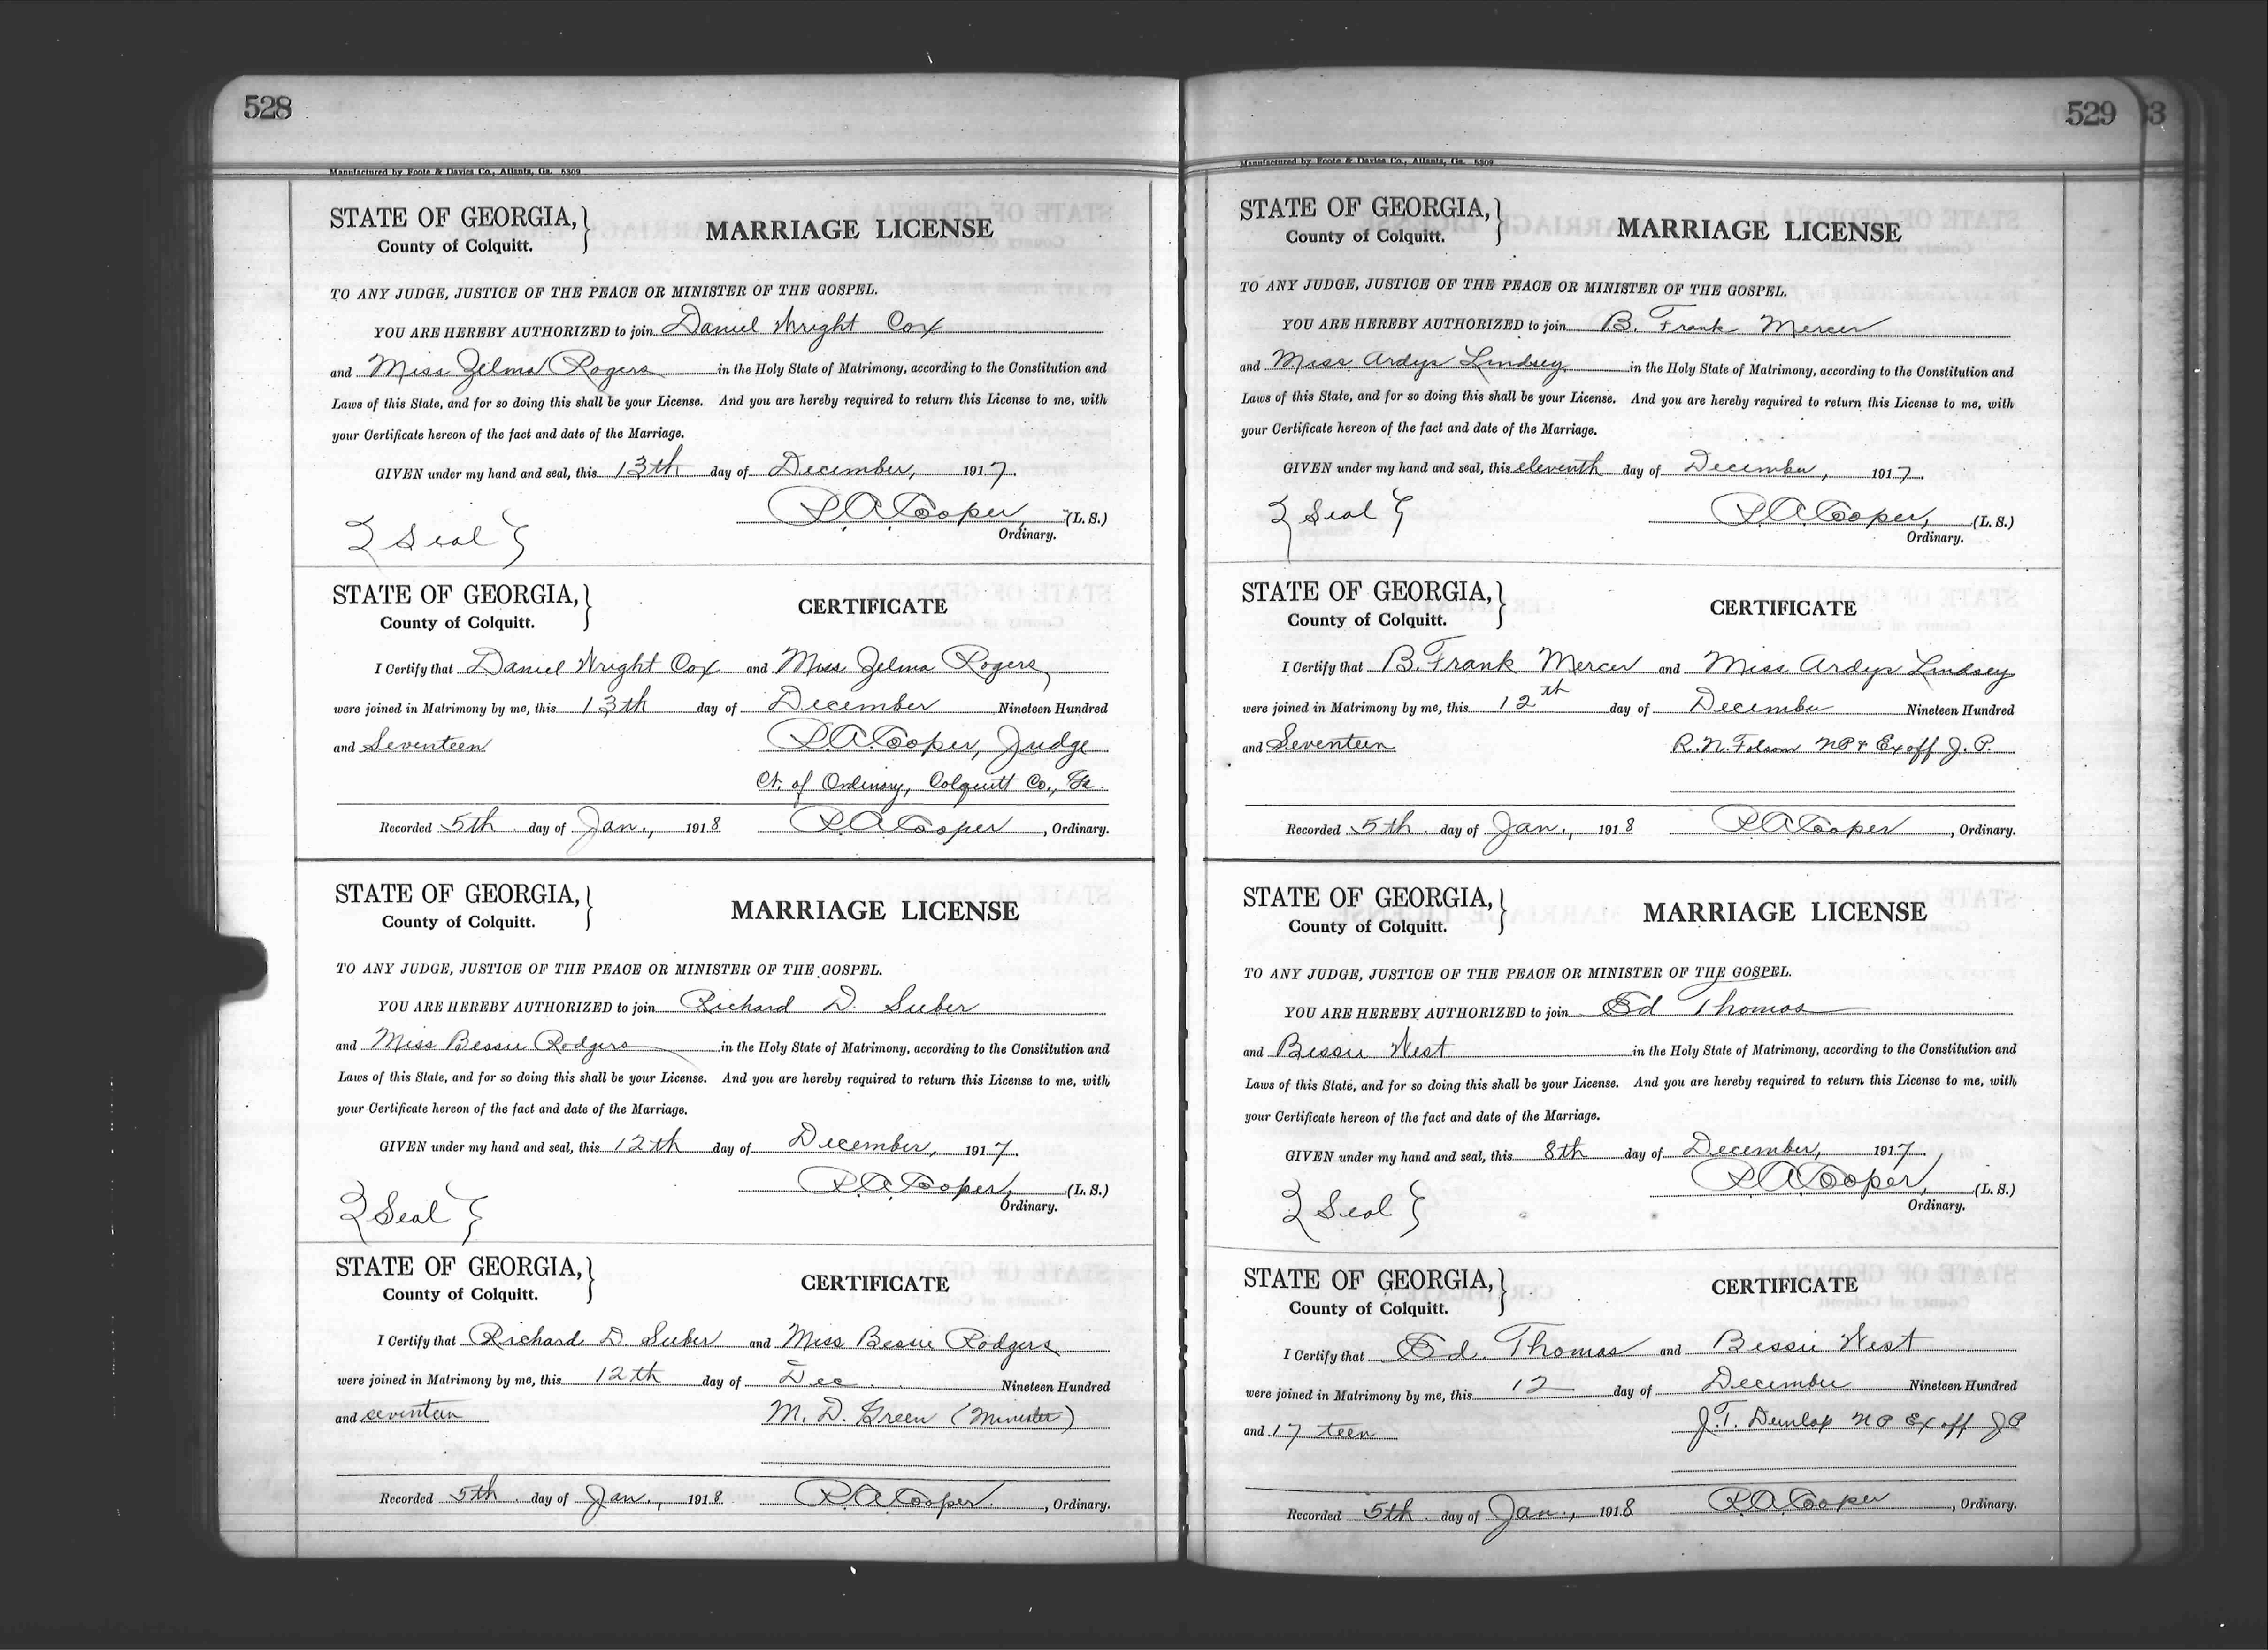 528
Manufactured by Foote & Davies Co., Atlanta, Ga. 5309
STATE OF GEORGIA,
County of Colquitt.
MARRIAGE LICENSE
TO ANY JUDGE, JUSTICE OF THE PEACE OR MINISTER OF THE GOSPEL.
YOU ARE HEREBY AUTHORIZED to join Daniel Wright Cox
and Miss Zelma Rogers in the Holy State of Matrimony, according to the Constitution and
Laws of this State, and for so doing this shall be your License. And you are hereby required to return this License to me, with
your Certificate hereon of the fact and date of the Marriage.
GIVEN under my hand and seal, this 13th day of December, 1917.
P.A. Cooper, (L. S.)
Ordinary.
{Seal}
STATE OF GEORGIA,
County of Colquitt.
CERTIFICATE
I Certify that Daniel Wright Cox and Miss Zelma Rogers
were joined in Matrimony by me, this 13th day of December Nineteen Hundred
and Seventeen P.A. Cooper, Judge
Ct. of Ordinary, Colquitt Co., Ga.
Recorded 5th day of Jan., 1918 P.A. Cooper, Ordinary.
STATE OF GEORGIA,
County of Colquitt.
MARRIAGE LICENSE
TO ANY JUDGE, JUSTICE OF THE PEACE OR MINISTER OF THE GOSPEL.
YOU ARE HEREBY AUTHORIZED to join Richard D. Suber
and Miss Bessie Rodgers in the Holy State of Matrimony, according to the Constitution and
Laws of this State, and for so doing this shall be your License. And you are hereby required to return this License to me, with
your Certificate hereon of the fact and date of the Marriage.
GIVEN under my hand and seal, this 12th day of December, 1917.
P.A. Cooper, (L. S.)
Ordinary.
{Seal}
STATE OF GEORGIA,
County of Colquitt.
CERTIFICATE
I Certify that Richard D. Suber and Miss Bessie Rodgers
were joined in Matrimony by me, this 12th day of Dec. Nineteen Hundred
and seventeen M. D. Green (Minister)
Recorded 5th day of Jan., 1918 P.A. Cooper. , Ordinary.
529
Manufactured by Foote & Davies Co., Atlanta, Ga. 5309
STATE OF GEORGIA,
County of Colquitt.
MARRIAGE LICENSE
TO ANY JUDGE, JUSTICE OF THE PEACE OR MINISTER OF THE GOSPEL.
YOU ARE HEREBY AUTHORIZED to join B. Frank Mercer
and Miss Ardys Lindsey in the Holy State of Matrimony, according to the Constitution and
Laws of this State, and for so doing this shall be your License. And you are hereby required to return this License to me, with
your Certificate hereon of the fact and date of the Marriage.
GIVEN under my hand and seal, this eleventh day of December, 1917.
P.A. Cooper, (L. S.)
Ordinary.
{Seal}
STATE OF GEORGIA,
County of Colquitt.
CERTIFICATE
I Certify that B. Frank Mercer and Miss Ardys Lindsey
were joined in Matrimony by me, this 12th day of December Nineteen Hundred
and Seventeen R. N. Folsom NP & Ex off J. P.
Recorded 5th. day of Jan., 1918 P.A. Cooper , Ordinary.
STATE OF GEORGIA,
County of Colquitt.
MARRIAGE LICENSE
TO ANY JUDGE, JUSTICE OF THE PEACE OR MINISTER OF THE GOSPEL.
YOU ARE HEREBY AUTHORIZED to join Ed Thomas
and Bessie West in the Holy State of Matrimony, according to the Constitution and
Laws of this State, and for so doing this shall be your License. And you are hereby required to return this License to me, with
your Certificate hereon of the fact and date of the Marriage.
GIVEN under my hand and seal, this 8th day of December, 1917.
P.A. Cooper, (L. S.)
Ordinary.
{Seal}
STATE OF GEORGIA,
County of Colquitt.
CERTIFICATE
I Certify that Ed. Thomas and Bessie West
were joined in Matrimony by me, this 12 day of December Nineteen Hundred
and 17 teen J. T. Dunlap NP Ex off JP
Recorded 5th. day of Jan., 1918 P.A. Cooper , Ordinary.